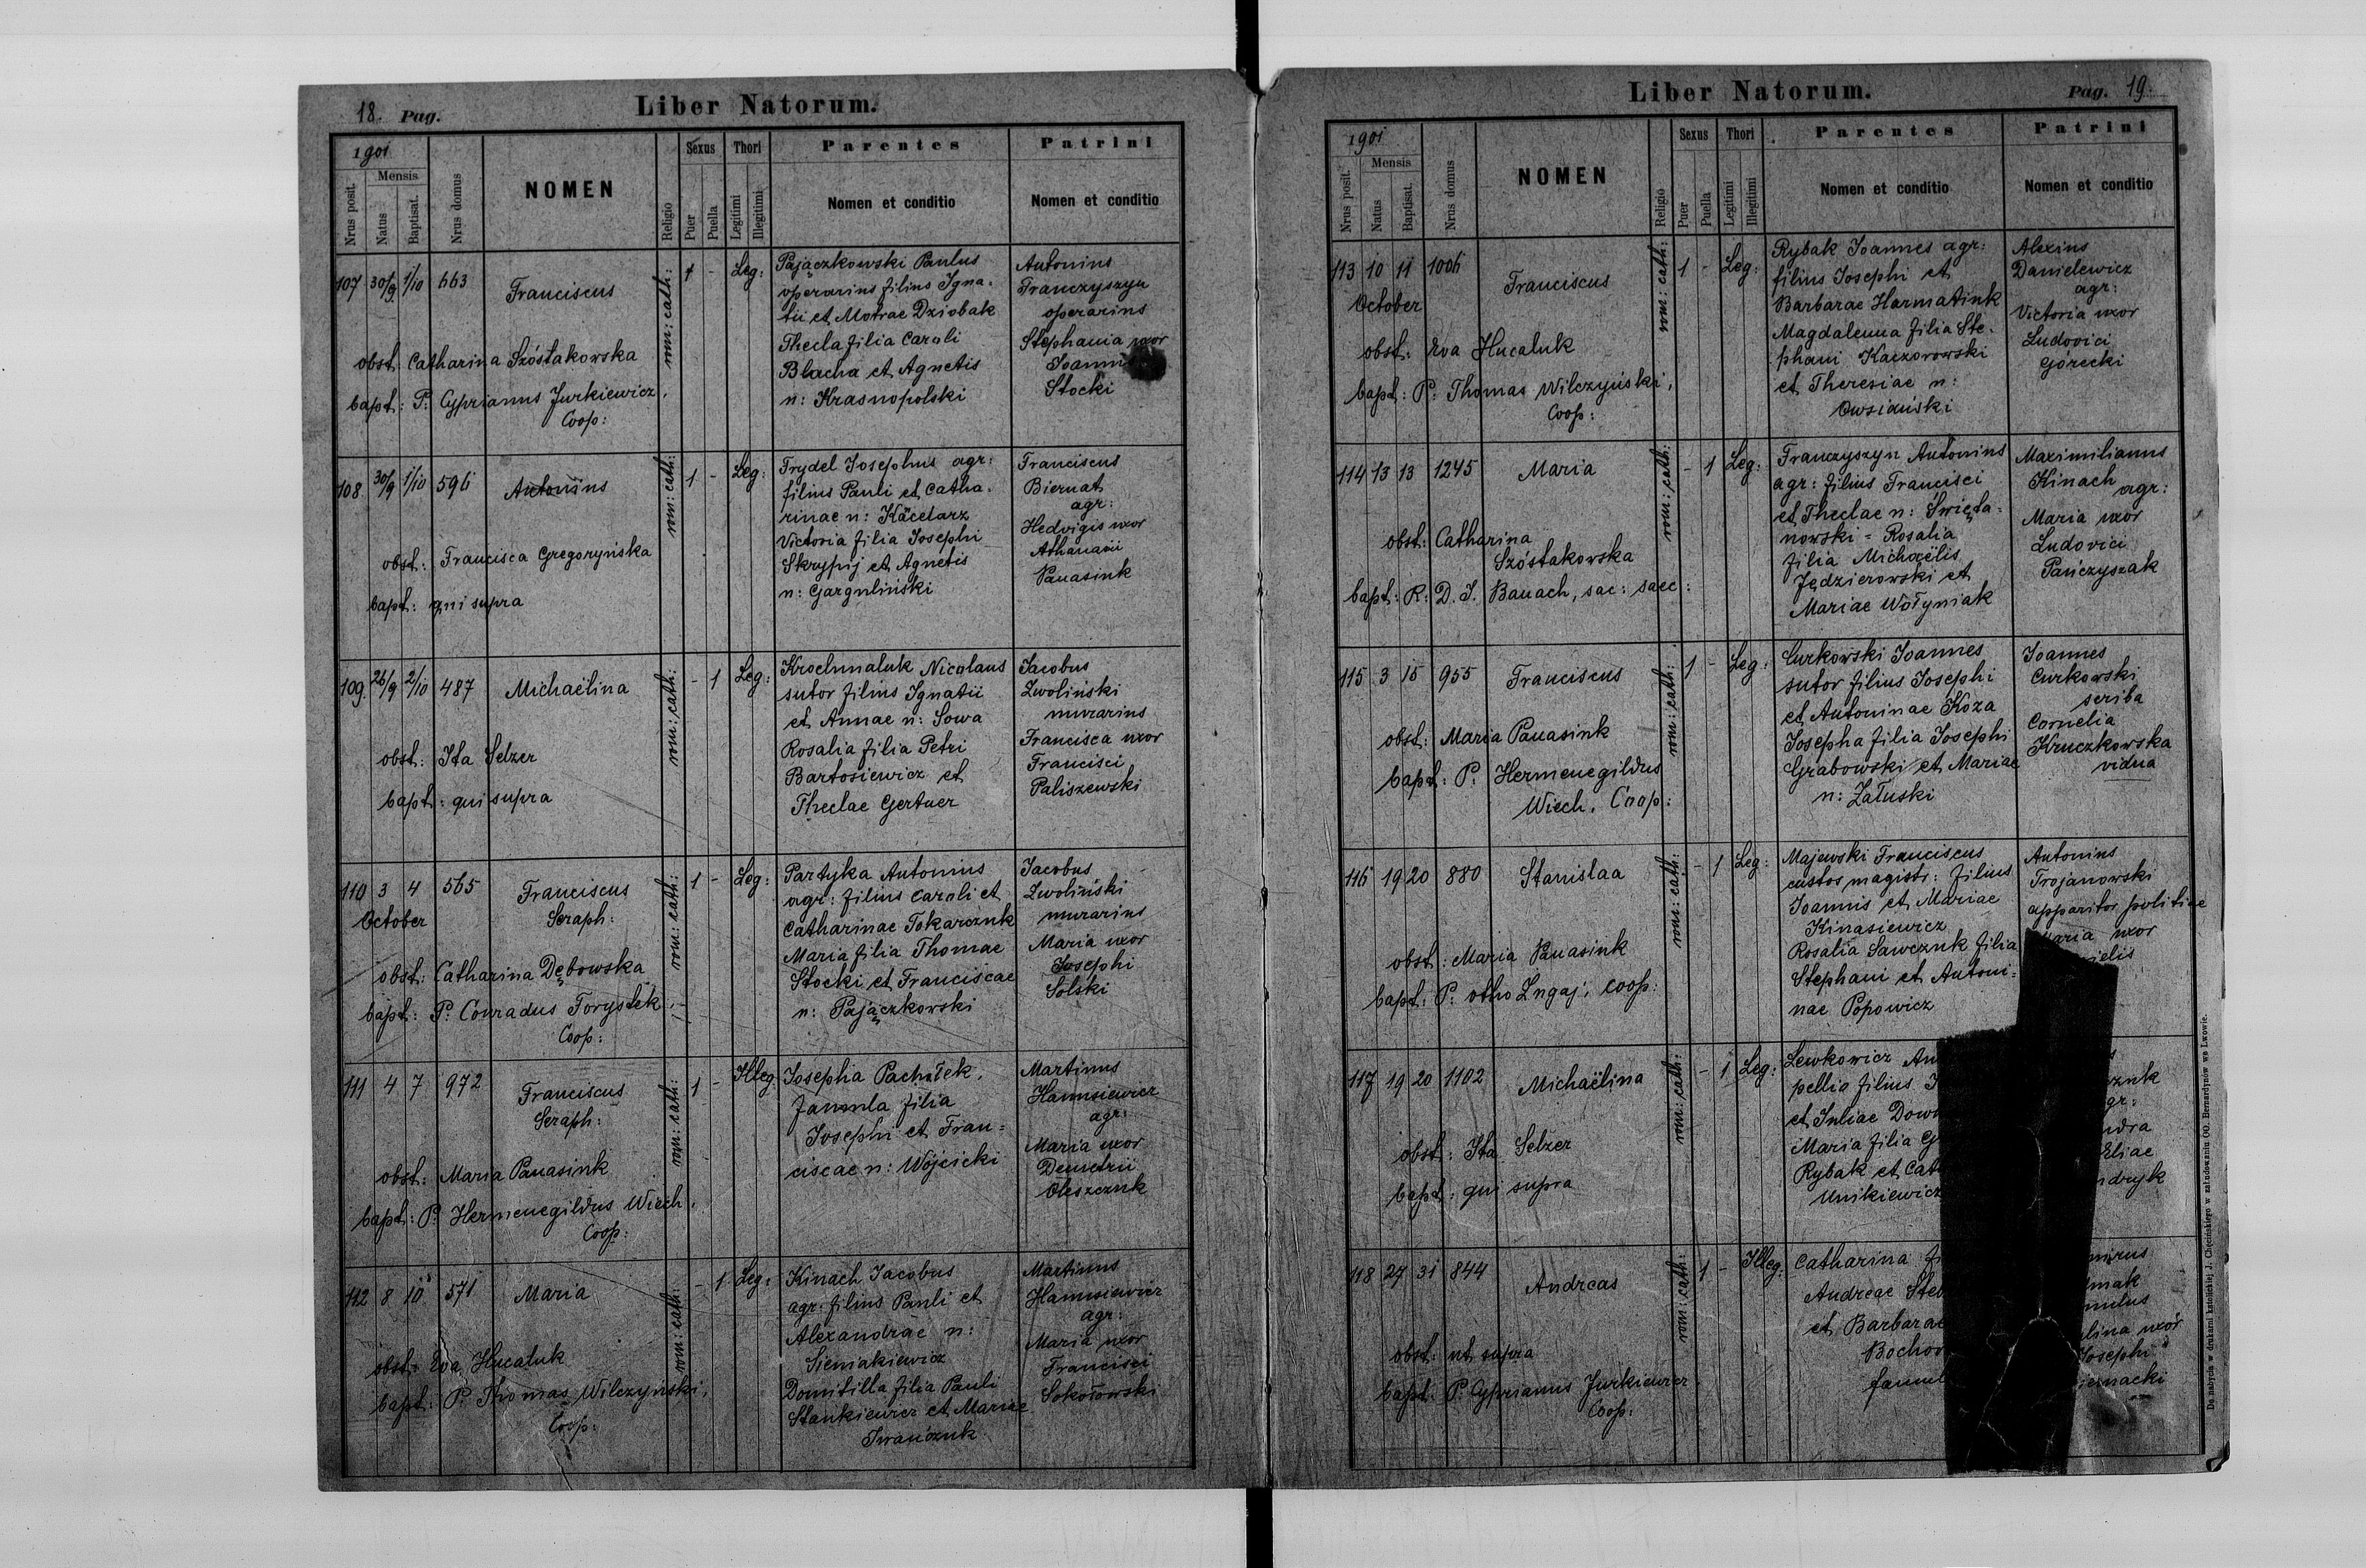 18. Pag.
Liber Natorum.
1901
Nrus posit.
Mensis
Natus
Baptisat.
Nrus domus
NOMEN
Religio
Sexus
Puer
Puella
Thori
Legitimi
Illegitimi
Parentes
Nomen et conditio
Patrini
Nomen et conditio
107 30/9 1/10 663
Franciscus
rom: cath:
1 - Leg:
obst: Catharina Szóstakowska
bapt: P. Cyprianus Jurkiewicz,
Coop:
Pajączkowski Paulus
operarius filius Igna-
tii et Motrae Dziobak
Thecla filia Caroli
Blacha et Agnetis
n: Krasnopolski
Antonius
Franczyszyn
operarius
Stephania uxor
Stocki
108 30/9 1/10 596
Antonius
rom: cath:
1 - Leg:
obst: Francisca Gregoryńska
bapt: qui supra
Trydel Josephus agr:
filius Pauli et Catha-
rinae n: Kăcelarz
Victoria filia Josephi
Skrypij et Agnetis
n: Garguliński
Franciscus
Biernat
agr:
Hedvigis uxor
Athanasii
Panasiuk
109. 26/9 2/10 487
Michaëlina
rom: cath:
- 1 Leg:
obst: Ita Selzer
bapt: qui supra
Krochmaluk Nicolaus
sutor filius Ignatii
et Annae n: Sowa
Rosalia filia Petri
Bartosiewicz et
Theclae Gertner
Jacobus
Zwoliński
murarius
Francisca uxor
Francisci
Paliszewski
110 3 4 565
October
Franciscus
Seraph:
rom: cath:
1 - Leg:
obst: Catharina Dębowska
bapt: P. Conradus Forystek,
Coop:
Partyka Antonius
agr: filius Caroli et
Catharinae Tokarczuk
Maria filia Thomae
Stocki et Franciscae
n: Pajączkowski
Jacobus
Zwoliński
murarius
Maria uxor
Josephi
Solski
111 4 7 972
Franciscus
Seraph:
rom: cath:
1 - Illeg.
obst: Maria Panasiuk
bapt: P. Hermenegildus Wiech,
Coop:
Josepha Pachołek,
famula filia
Josephi et Fran=
ciscae n: Wójcicki
Martinus
Hanusiewicz
agr:
Maria uxor
Demetrii
Oleszczuk
112 8 10 571
Maria
rom: cath:
- 1 Leg:
obst: Eva Hucaluk
bapt: P. Thomas Wilczyński,
Coop:
Kinach Jacobus
agr: filius Pauli et
Alexandrae n:
Sieniakiewicz
Domitilla filia Pauli
Stankiewicz et Mariae
Iwańczuk
Martinus
Hanusiewicz
agr:
Maria uxor
Francisci
Sokołowski
Liber Natorum.
Pag. 19.
1901
Nrus posit.
Mensis
Natus
Baptisat.
Nrus domus
NOMEN
Religio
Sexus
Puer
Puella
Thori
Legitimi
Illegitimi
Parentes
Nomen et conditio
Patrini
Nomen et conditio
113 10 11 1006
October
Franciscus
rom: cath:
1 - Leg:
obst: Eva Hucaluk
bapt: P. Thomas Wilczyński,
Coop:
Rybak Joannes agr:
filius Josephi et
Barbarae Harmatiuk
Magdalena filia Ste-
phani Kaczorowski
et Theresiae n:
Owsiański
Alexius
Danielewicz
agr:
Victoria uxor
Ludovici
Górecki
114 13 13 1245
Maria
rom: cath:
- 1 Leg:
obst: Catharina
Szóstakowska
bapt: R. D. J. Banach, sac: saec:
Franczyszyn Antonius
agr: filius Francisci
et Theclae n: Święta-
nowski = Rosalia
filia Michaëlis
Jędzierowski et
Mariae Wołyniak
Maximilianus
Kinach
agr:
Maria uxor
Ludovici
Pańczyszak
115 3 15 955
Franciscus
rom: cath:
1 - Leg:
obst: Maria Panasiuk
bapt: P. Hermenegildus
Wiech, Coop:
Curkowski Joannes
sutor filius Josephi
et Antoninae Koza
Josepha filia Josephi
Grabowski et Mariae
n: Załuski
Joannes
Curkowski
scriba
Cornelia
Kruczkowska
vidua
116 19 20 880
Stanislaa
rom: cath:
- 1 Leg:
obst: Maria Panasiuk
bapt: P. Otho Lngaj, Coop:
Majewski Franciscus
custos magistr: filius
Joannis et Mariae
Kinasiewicz
Rosalia Sawczuk filia
Stephani et Antoni=
nae Popowicz
Antonius
Trojanowski
apparitor politiae
Maria uxor
117 19 20 1102
Michaëlina
rom: cath:
- 1 Leg:
obst: Ita Selzer
bapt: qui supra
Lewkowicz
pellio filius
et Juliae
Maria filia
Rybak et
Unikiewicz
Eliae
118 27 31 844
Andreas
rom: cath:
1 - Illeg:
obst: ut supra
bapt: P. Cyprianus Jurkiewicz
Coop:
Catharina
Andreae
et Barbarae
uxor
Josephi
Do nabycia w drukarni katolickiej J. Chęcińskiego w zabudowaniu OO. Bernardynów we Lwowie.